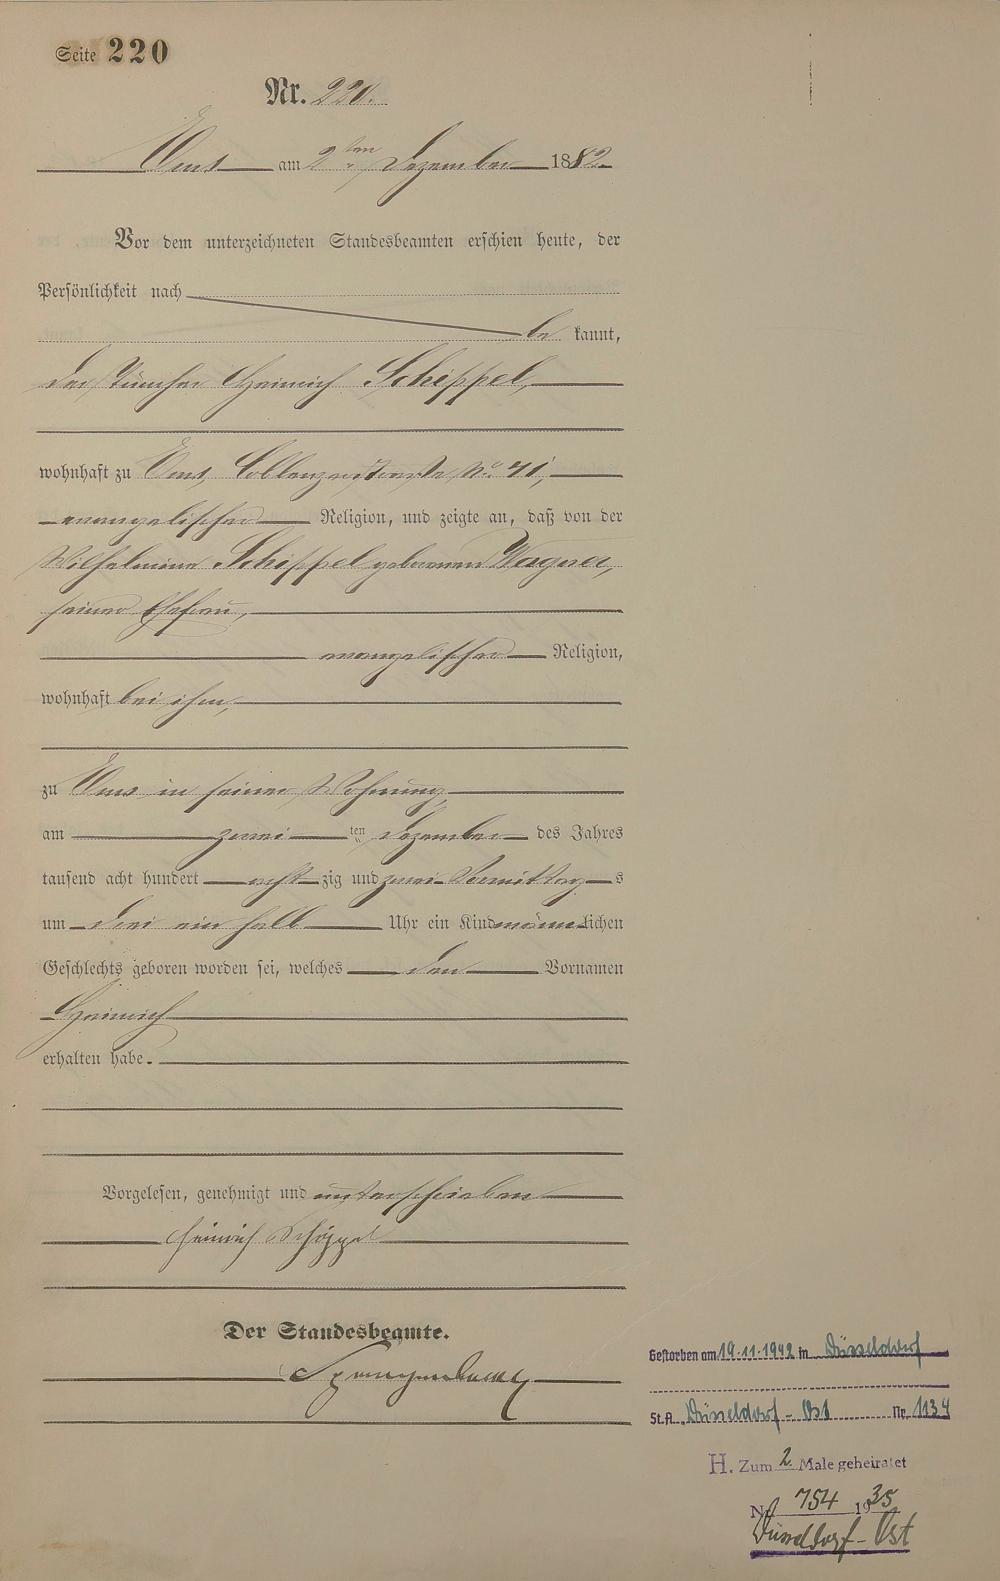 Seite 220
Nr. 220.
Ems am 2ten Dezember 1882
Vor dem unterzeichneten Standesbeamten erschien heute, der
Persönlichkeit nach
be kannt,
der Tüncher Heinrich Schippel,
wohnhaft zu Ems, Coblenzerstraße No. 41,
evangelischer Religion, und zeigte an, daß von der
Wilhelmine Schippel geborenen Wagner,
seiner Ehefrau,
evangelischer Religion,
wohnhaft bei ihm,
zu Ems in seiner Wohnung,
am zwei ten Dezember des Jahres
tausend acht hundert acht zig und zwei Vormittag s
um drei ein halb Uhr ein Kind männlichen
Geschlechts geboren worden sei, welches den Vornamen
Heinrich
erhalten habe.
Vorgelesen, genehmigt und unterschrieben
Heinrich Schippel
Der Standesbeamte.
Gestorben am 19.11.1942 in Düsseldorf
St.A. Düsseldorf-Ost Nr. 1134
H. Zum 2. Male geheiratet
Nr. 754 1935
Düsseldorf-Ost